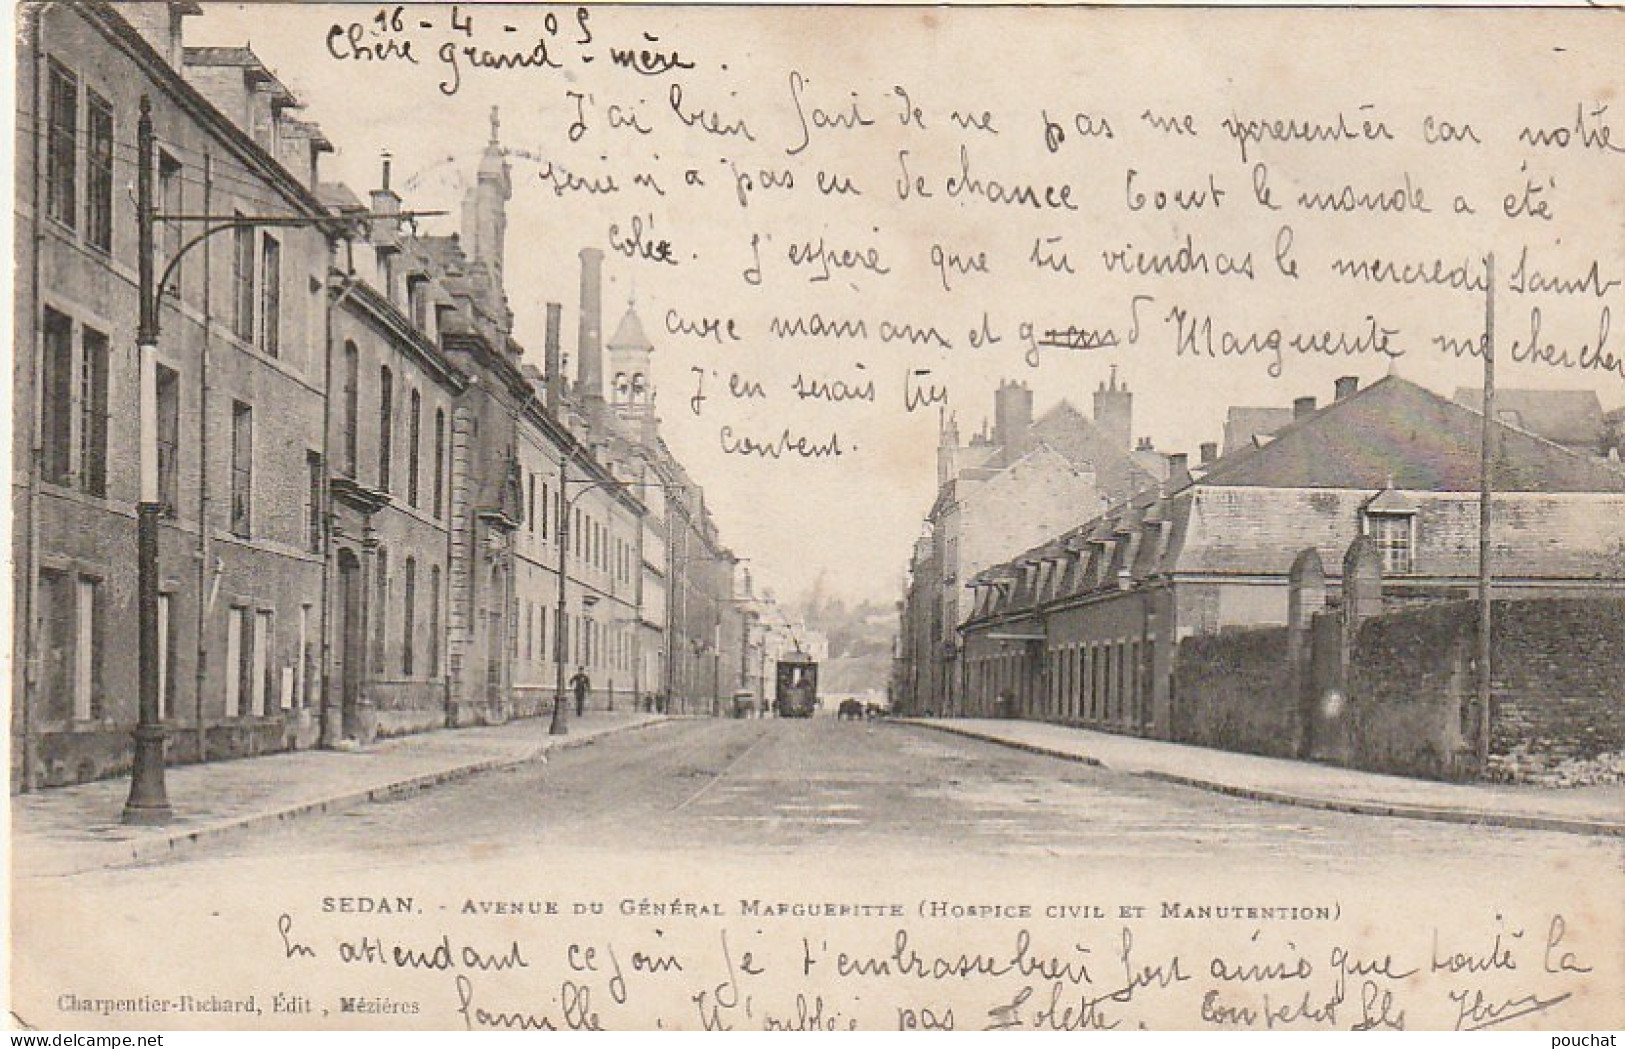 16 - 4 - 05
Chère grand - mère .
J'ai bien fait de ne pas me presenter car notre
serie n'a pas eu de chance tout le monde a été
colée . J'espère que tu viendras le mercredi Saint
avec maman et grand Marguerite me chercher
J'en serais très
content .
SEDAN. - AVENUE DU GÉNÉRAL MARGUERITTE (HOSPICE CIVIL ET MANUTENTION)
En attendant ce join je t'embrasse bien fort ainsi que toute la
Charpentier-Richard, Édit , Mézières
famille . N'oublie pas Lolette . Ton petit fils
pouchat